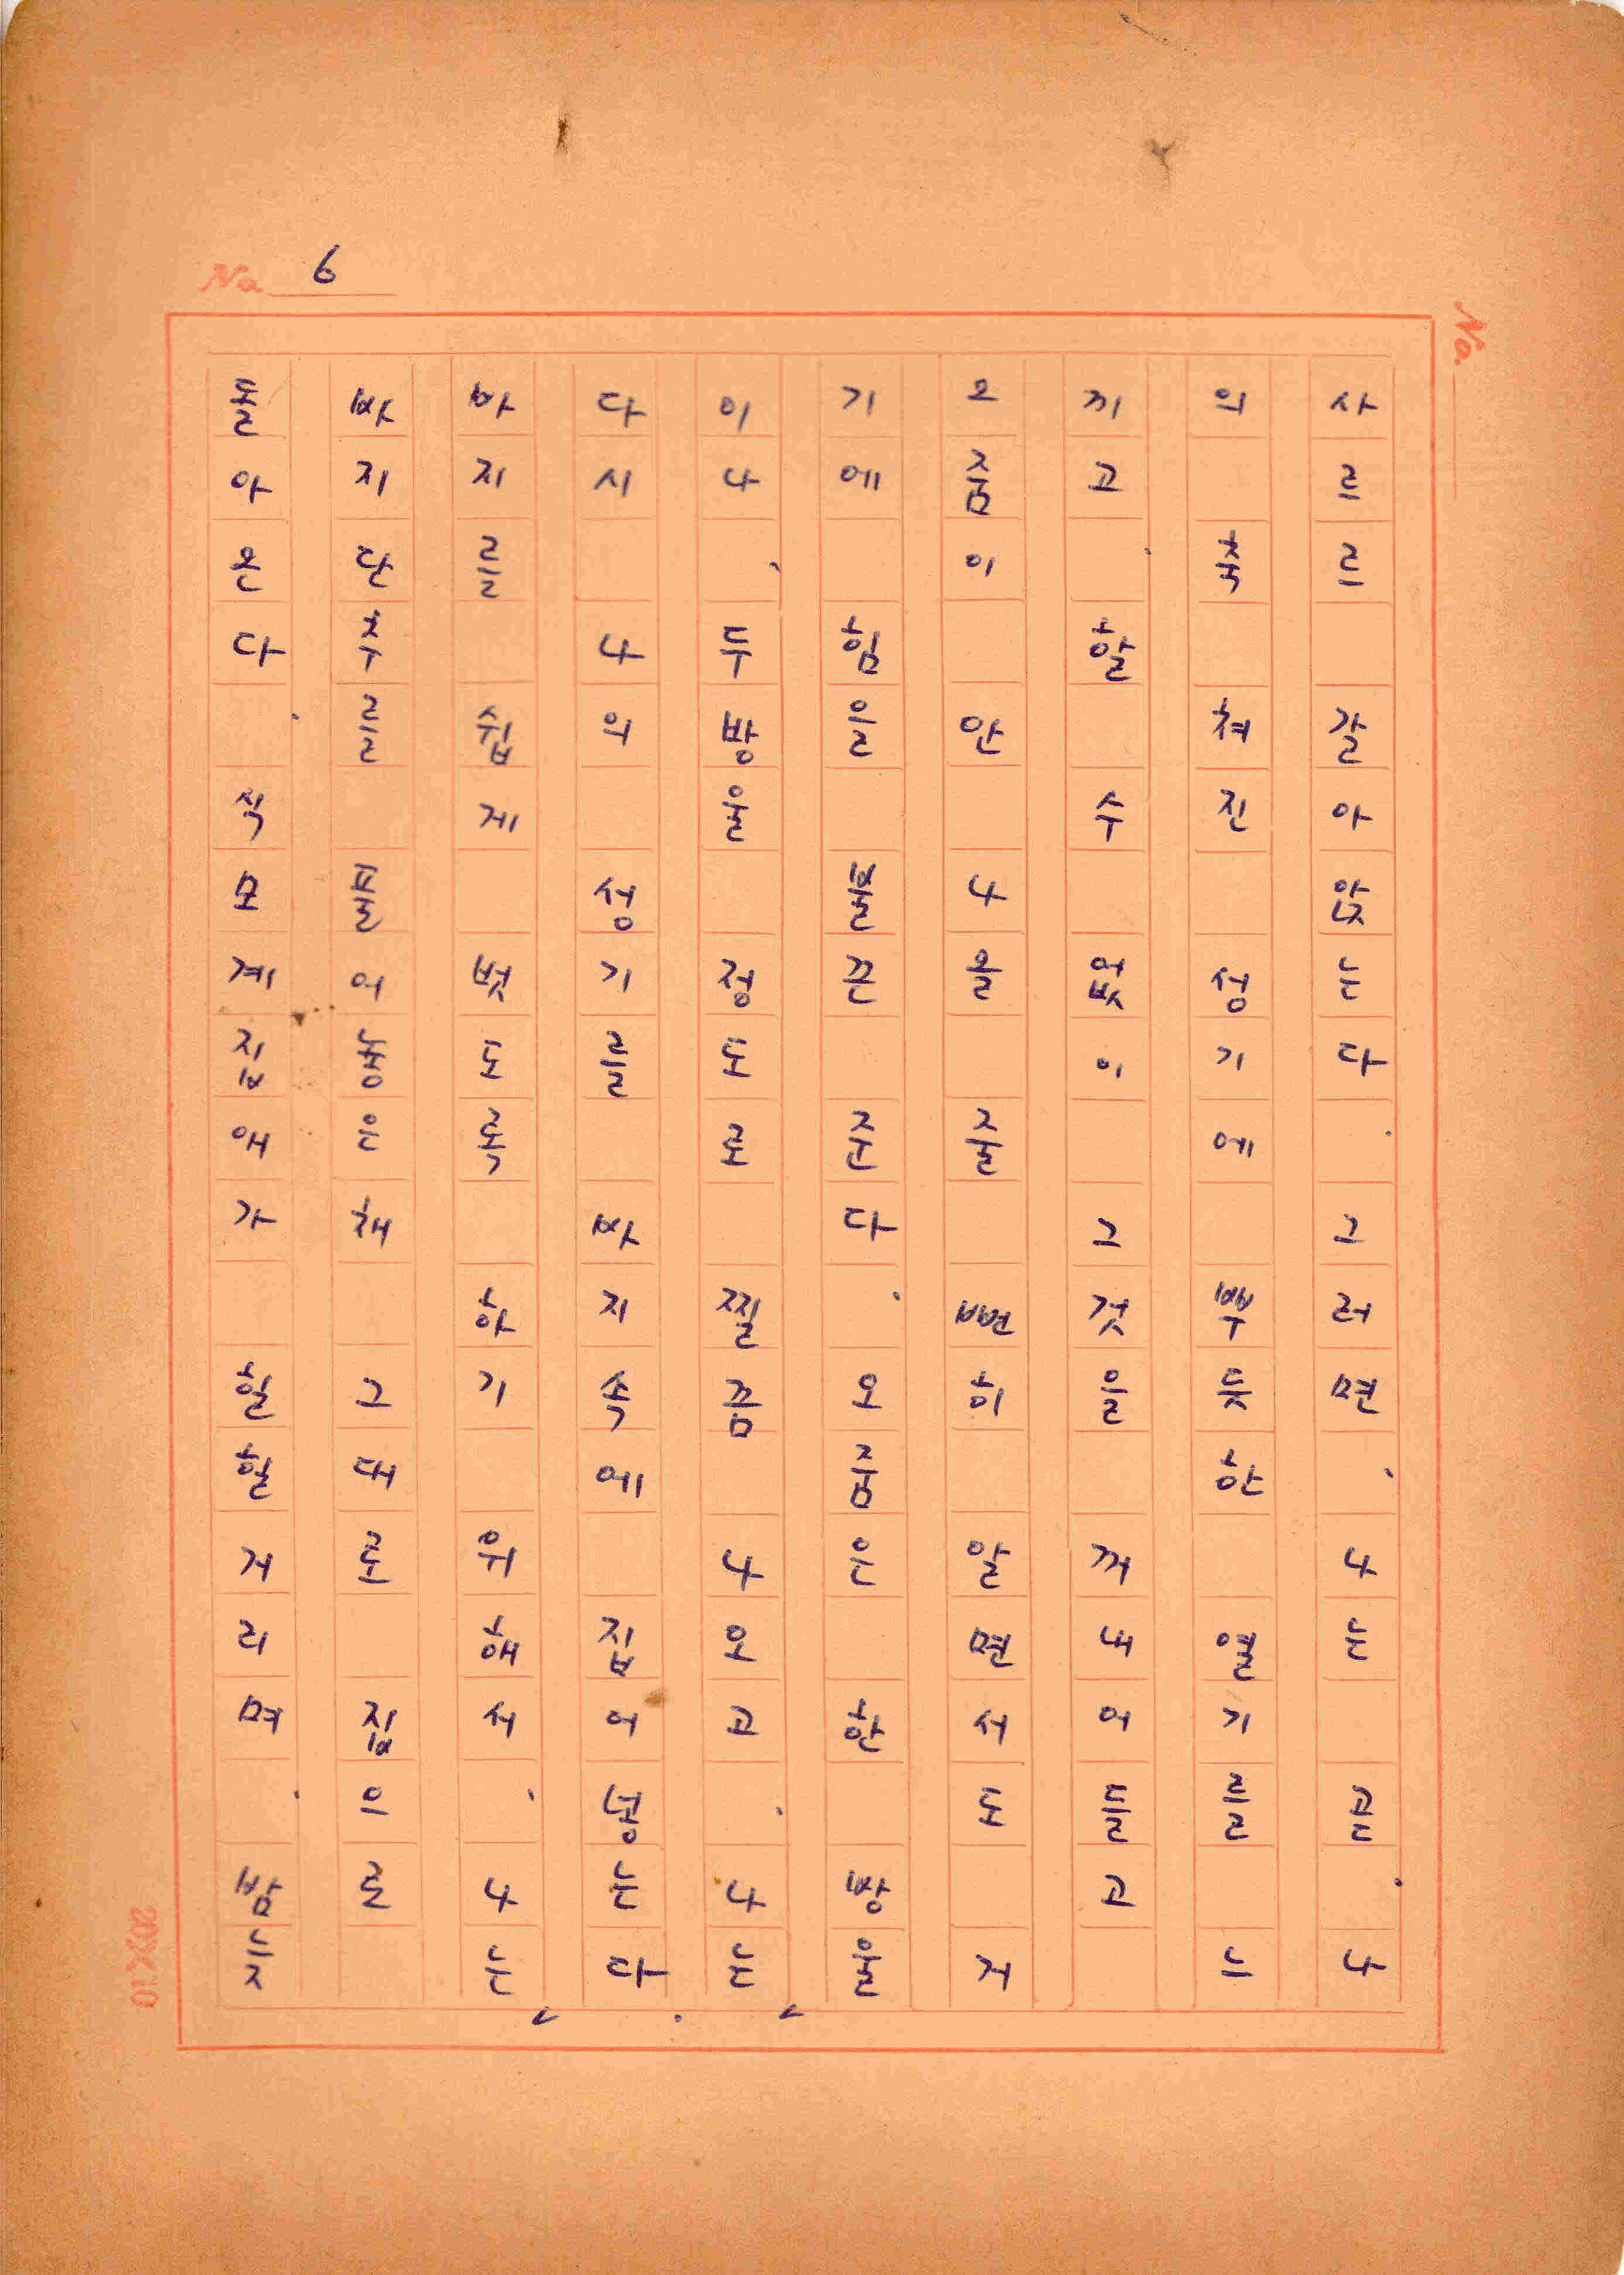 No. 6
사르르 갈아앉는다. 그러면, 나는 곧. 나
의 축 쳐진 성기에 뿌듯한 열기를 느
끼고, 할 수 없이 그것을 꺼내어들고
오줌이 안 나올 줄 뻔히 알면서도 거
기에 힘을 불끈 준다. 오줌은 한 방울
이나, 두방울 정도로 찔끔 나오고, 나는
다시 나의 성기를 바지속에 집어넣는다.
바지를 쉽게 벗도록 하기 위해서, 나는
바지단추를 풀어놓은채 그대로 집으로
돌아온다. 식모계집애가 힐힐거리며, 밤늦
No.
20X10